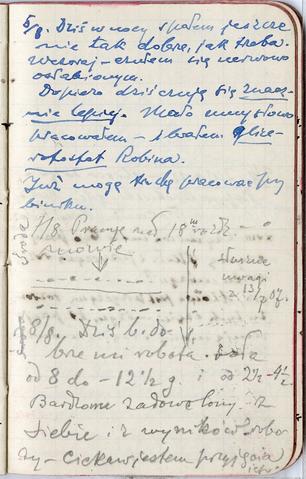 5/8. Dziś w nocy spałem jeszcze
nie tak dobrze, jak trzeba.
Wczoraj – czułem się nerwowo
osłabionym.
Dopiero dziś czuję się znacz-
nie lepiej. Mało umysłowo
pracowałem – i brałem glice-
rofosfat Robina.
Już mogę trochę pracować przy
biurku.
7/8. Pracuję nad 18
mowie
słuszne
uwagi
8/8. Dziś b. do-
brze mi robota szła
od 8 do – 12 1/2 g. i od 2 1/2 – 4 1/2
Bardzom zadowolony z
siebie i z wyników robo-
ty – ciekaw jestem przyjęcia